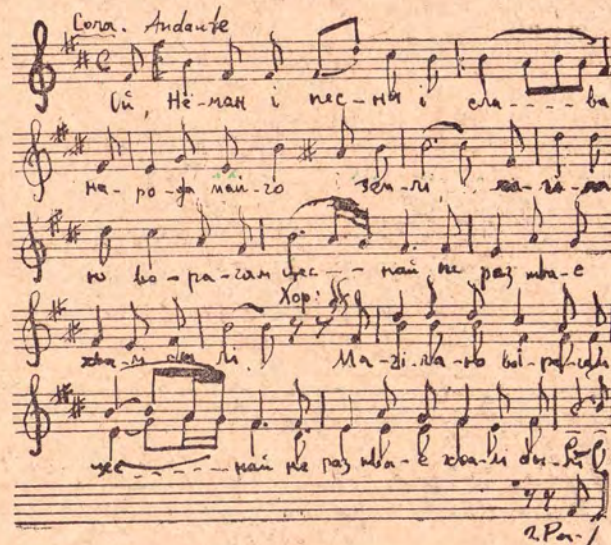 Сола. Andante
Ой, Нё-ман і пес-ня і сла----ва
на-ро-да май-го зем-лі. ма-гі-ла-
ю во-ра-гам цес---най не раз тва-е
Хор:
хва-лі бы-лі. Ма-гі-ла-ю во-ра-гам
цес-----най не раз тва-е хва-лі бы-лі
2. Ра-